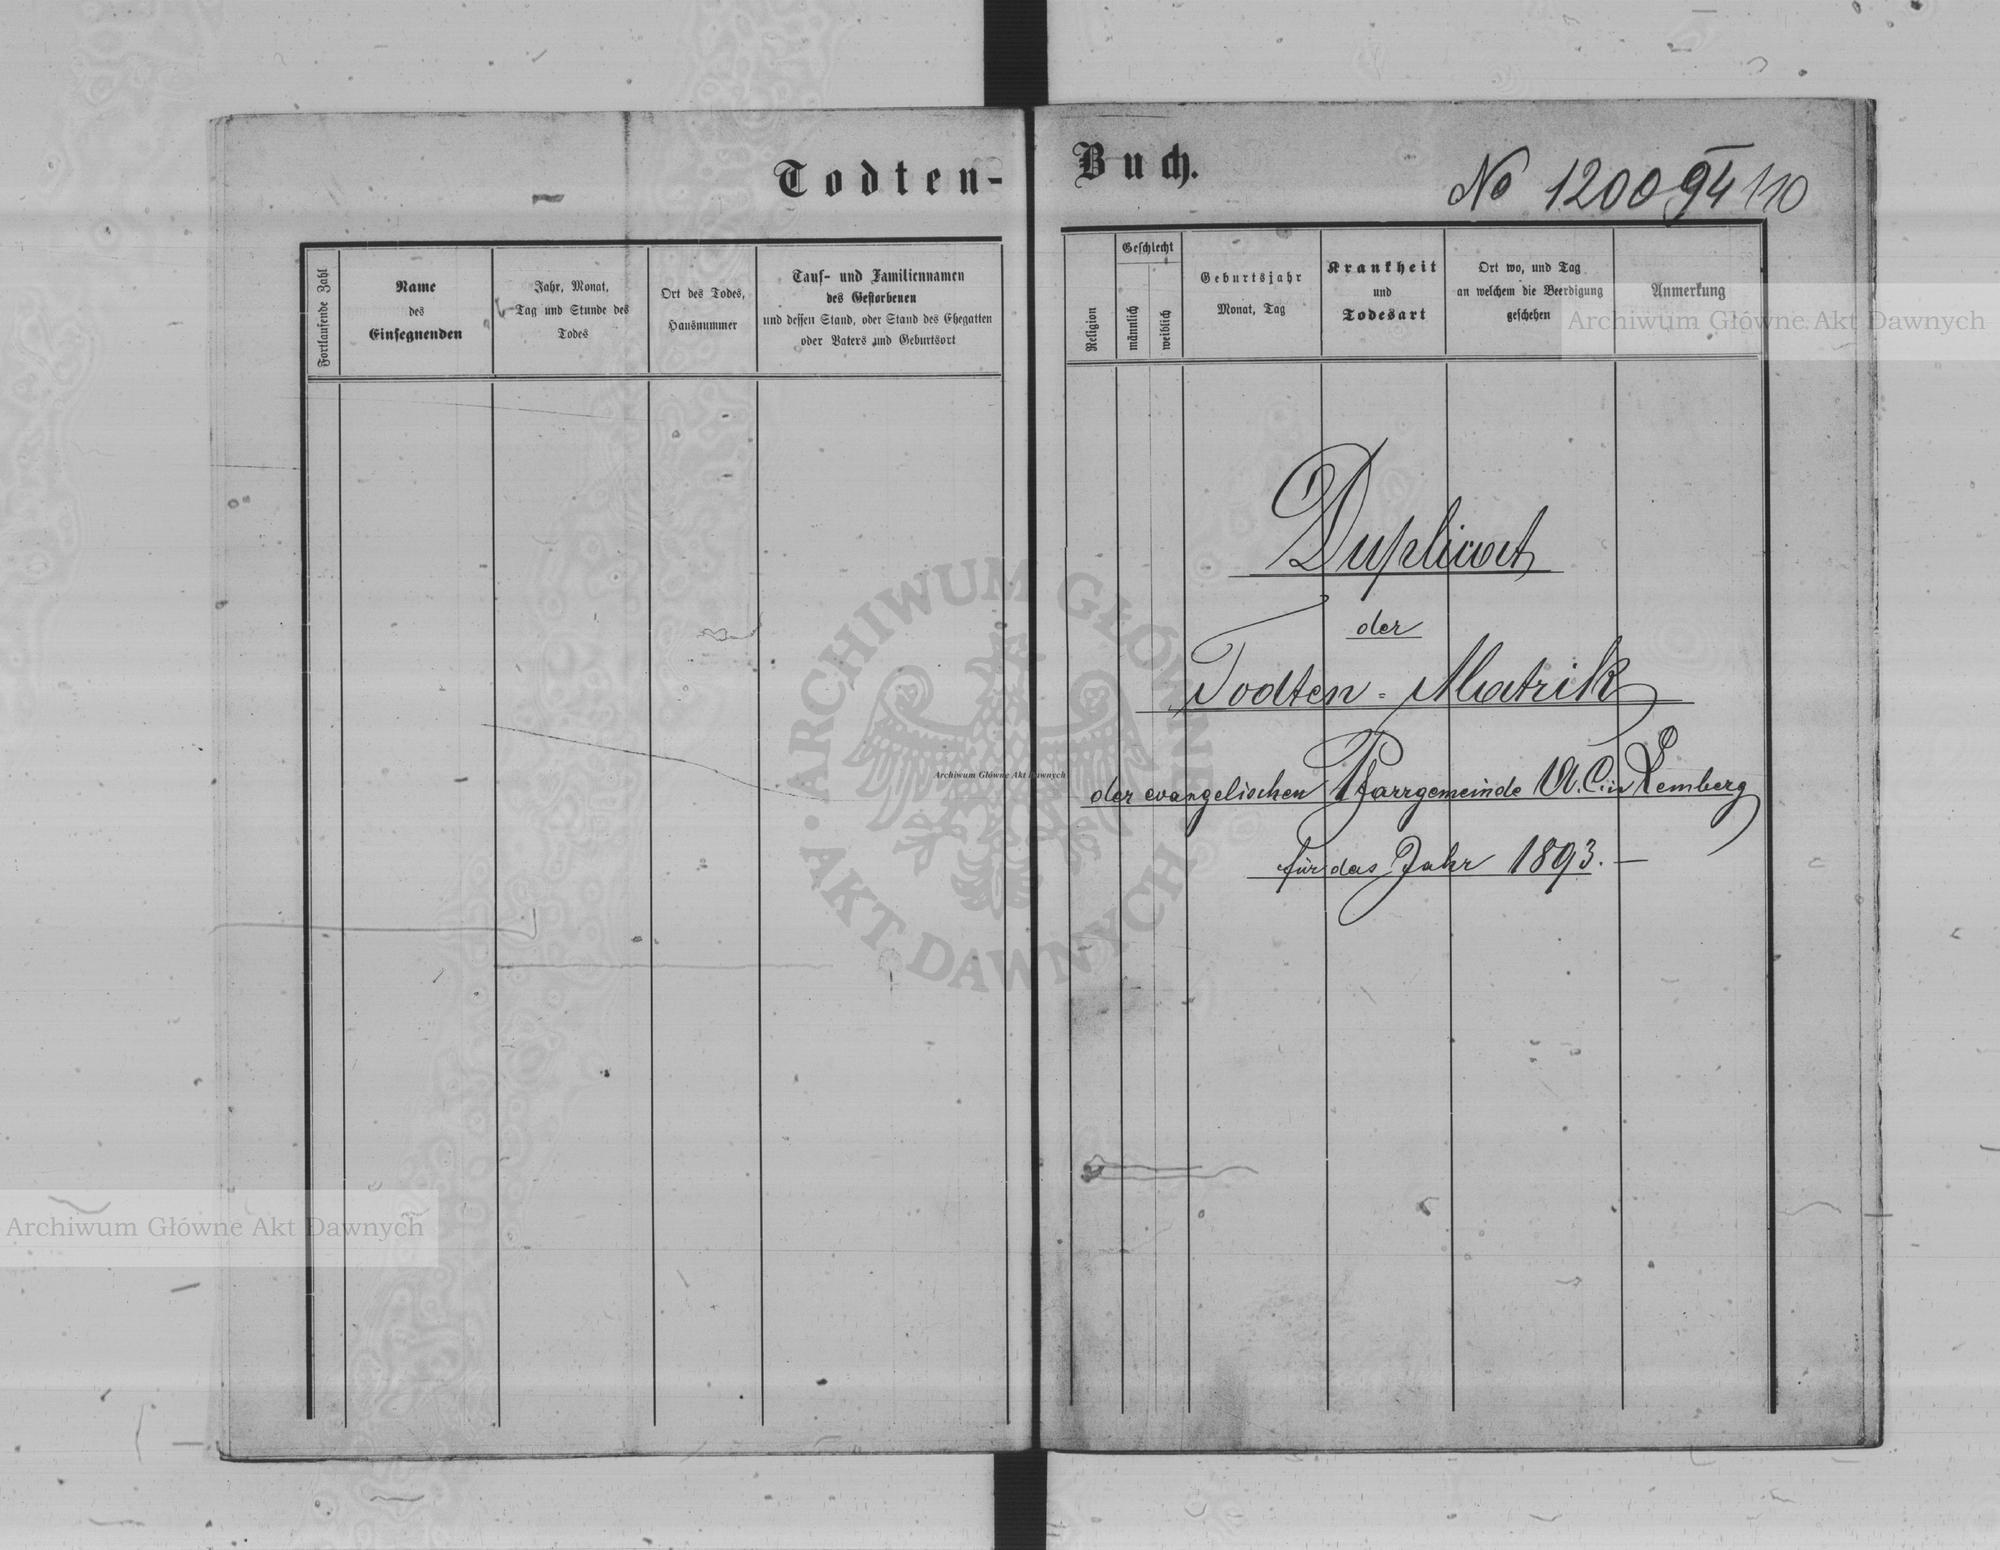 Todten-Buch.
No 1200 94/10
Fortlaufende Zahl
Name
des
Einsegnenden
Jahr, Monat,
Tag und Stunde des
Todes
Ort des Todes,
Hausnummer
Tauf- und Familiennamen
des Gestorbenen
und dessen Stand, oder Stand des Ehegatten
oder Vaters und Geburtsort
Religion
Geschlecht
männlich
weiblich
Geburtsjahr
Monat, Tag
Krankheit
und
Todesart
Ort wo, und Tag
an welchem die Beerdigung
geschehen
Anmerkung
Archiwum Główne Akt Dawnych
Duplicat
der
Todten-Matrik
der evangelischen Pfarrgemeinde A.C. in Lemberg
für das Jahr 1893.—
ARCHIWUM GŁÓWNE
AKT DAWNYCH
Archiwum Główne Akt Dawnych
Archiwum Główne Akt Dawnych